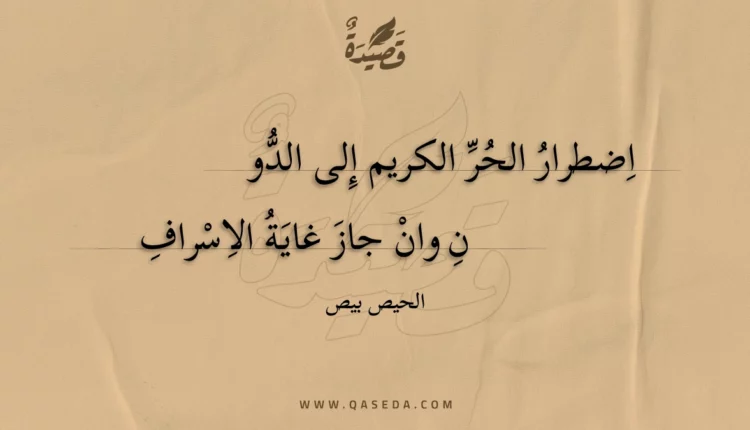 قَصِيْدَةٌ
اِضطرارُ الحُرِّ الكريم إِلى الدُّو
نِ وانْ جازَ غايَةُ الاِسْرافِ
الحيص بيص
WWW.QASEDA.COM